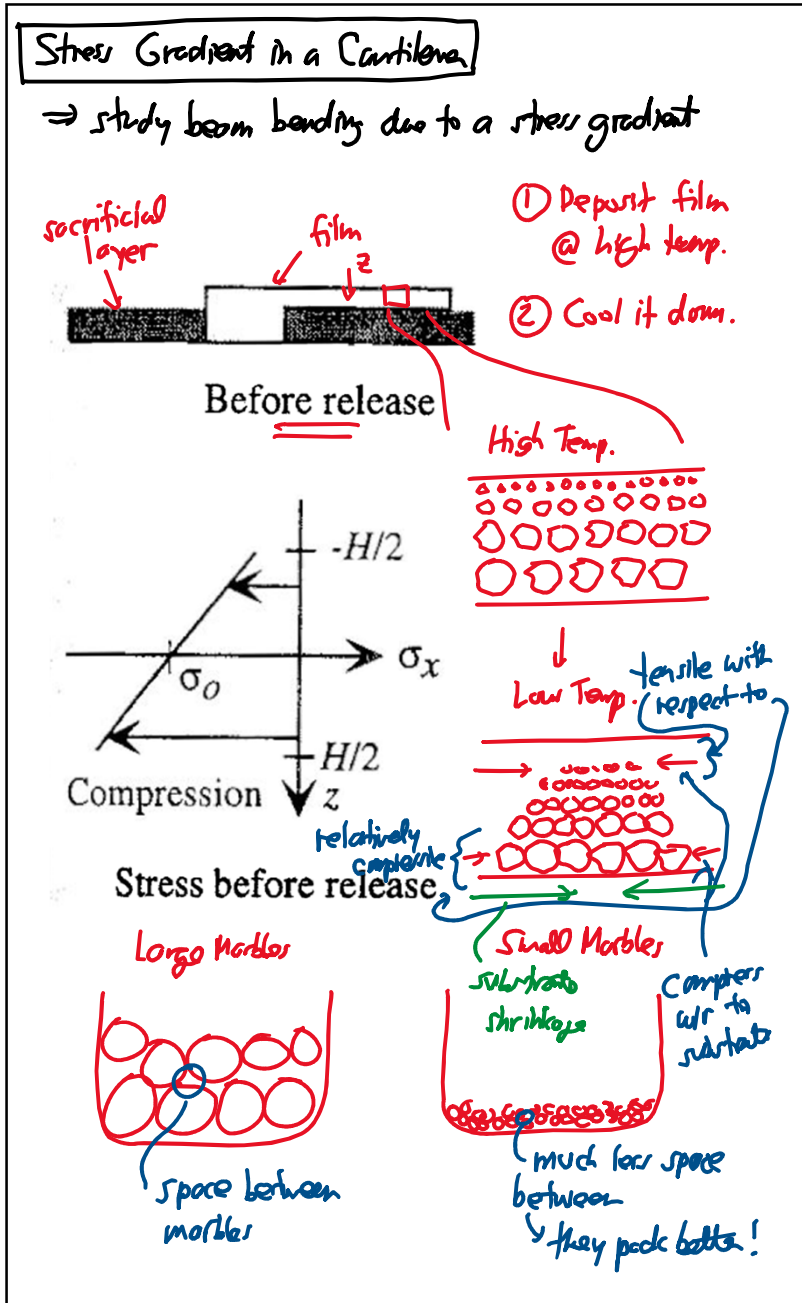 Stress Gradient in a Cantilever
⇒ study beam bending due to a stress gradient
sacrificial
layer
film
z
① Deposit film
@ high temp.
② Cool it down.
Before release
High Temp.
-H/2
σx
σo
H/2
Compression
z
Stress before release
Low Temp.
tensile with
respect to
relatively
compressive
Large Marbles
Small Marbles
substrate
shrinkage
compress
w/r to
substrate
space between
marbles
much less space
between
they pack better!